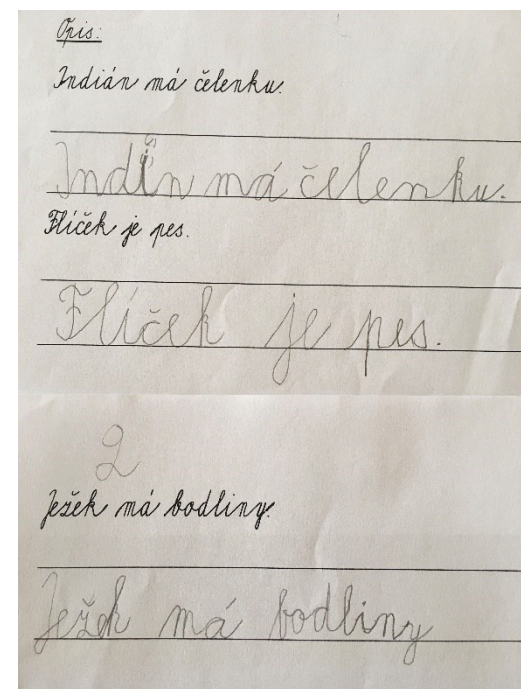 Opis:
Indián má čelenku.
Indin má čelenku.
Flíček je pes.
Flíček je pes.
2
Ježek má bodliny.
Ježek má bodliny